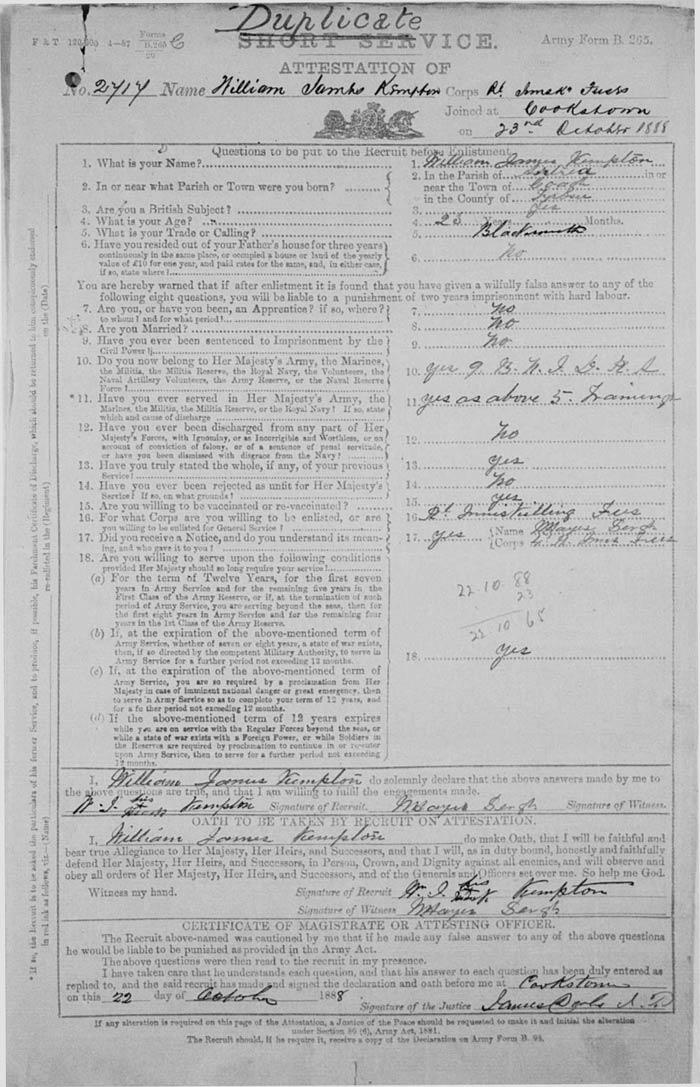 Duplicate
F & T 120,000 4—87 Forms B.265 20
SHORT SERVICE.
Army Form B. 265.
ATTESTATION OF
No. 2717 Name William James Kempton Corps Rl. Innisk. Fusrs
Joined at Cookstown
on 23rd October 1888
Questions to be put to the Recruit before Enlistment.
1. What is your Name? 1. William James Kempton
2. In or near what Parish or Town were you born? 2. In the Parish of Artrea in or
near the Town of
in the County of
3. Are you a British Subject? 3. Yes
4. What is your Age? 4. 23 Years Months.
5. What is your Trade or Calling? 5. Blacksmith
6. Have you resided out of your Father's house for three years
continuously in the same place, or occupied a house or land of the yearly
value of £10 for one year, and paid rates for the same, and, in either case,
if so, state where? 6. No
You are hereby warned that if after enlistment it is found that you have given a wilfully false answer to any of the
following eight questions, you will be liable to a punishment of two years imprisonment with hard labour.
7. Are you, or have you been, an Apprentice? if so, where?
to whom? and for what period? 7. No
8. Are you Married? 8. No
9. Have you ever been sentenced to Imprisonment by the
Civil Power? 9. No
10. Do you now belong to Her Majesty's Army, the Marines,
the Militia, the Militia Reserve, the Royal Navy, the Volunteers, the
Naval Artillery Volunteers, the Army Reserve, or the Naval Reserve
Force? 10. yes 9 B. N. I. D. R A
*11. Have you ever served in Her Majesty's Army, the
Marines, the Militia, the Militia Reserve, or the Royal Navy? If so, state
which and cause of discharge 11. yes as above 5. Trainings
12. Have you ever been discharged from any part of Her
Majesty's Forces, with Ignominy, or as Incorrigible and Worthless, or on
account of conviction of felony, or of a sentence of penal servitude,
or have you been dismissed with disgrace from the Navy? 12. No
13. Have you truly stated the whole, if any, of your previous
Service? 13. yes
14. Have you ever been rejected as unfit for Her Majesty's
Service? If so, on what grounds? 14. No
15. Are you willing to be vaccinated or re-vaccinated? 15. yes
16. For what Corps are you willing to be enlisted, or are
you willing to be enlisted for General Service? 16. Rl. Inniskilling Fus
17. Did you receive a Notice, and do you understand its mean-
ing, and who gave it to you? 17. yes Name Mayes Sergt
Corps Innis Fus
18. Are you willing to serve upon the following conditions
provided Her Majesty should so long require your service?
(a) For the term of Twelve Years, for the first seven
years in Army Service and for the remaining five years in the
First Class of the Army Reserve, or if, at the termination of such
period of Army Service, you are serving beyond the seas, then for
the first eight years in Army Service and for the remaining four
years in the 1st Class of the Army Reserve.
22 10 88
23
22 10 65
(b) If, at the expiration of the above-mentioned term of
Army Service, whether of seven or eight years, a state of war exists,
then, if so directed by the competent Military Authority, to serve in
Army Service for a further period not exceeding 12 months.
18. yes
(c) If, at the expiration of the above-mentioned term of
Army Service, you are so required by a proclamation from Her
Majesty in case of imminent national danger or great emergency, then
to serve in Army Service so as to complete your term of 12 years, and
for a further period not exceeding 12 months.
(d) If the above-mentioned term of 12 years expires
while you are on service with the Regular Forces beyond the seas, or
while a state of war exists with a Foreign Power, or while Soldiers in
the Reserves are required by proclamation to continue in or re-enter
upon Army Service, then to serve for a further period not exceeding
12 months.
I, William James Kempton do solemnly declare that the above answers made by me to
the above questions are true, and that I am willing to fulfil the engagements made.
W. J. his mark Kempton Signature of Recruit. Mayes Sergt Signature of Witness.
OATH TO BE TAKEN BY RECRUIT ON ATTESTATION.
I, William James Kempton do make Oath, that I will be faithful and
bear true Allegiance to Her Majesty, Her Heirs, and Successors, and that I will, as in duty bound, honestly and faithfully
defend Her Majesty, Her Heirs, and Successors, in Person, Crown, and Dignity against all enemies, and will observe and
obey all orders of Her Majesty, Her Heirs, and Successors, and of the Generals and Officers set over me. So help me God.
Witness my hand. Signature of Recruit Wm. J. his mark Kempton
Signature of Witness Mayes Sergt
CERTIFICATE OF MAGISTRATE OR ATTESTING OFFICER.
The Recruit above-named was cautioned by me that if he made any false answer to any of the above questions
he would be liable to be punished as provided in the Army Act.
The above questions were then read to the recruit in my presence.
I have taken care that he understands each question, and that his answer to each question has been duly entered as
replied to, and the said recruit has made and signed the declaration and oath before me at Cookstown
on this 22 day of October 1888
Signature of the Justice James
If any alteration is required on this page of the Attestation, a Justice of the Peace should be requested to make it and initial the alteration
under Section 80 (6), Army Act, 1881.
The Recruit should, if he require it, receive a copy of the Declaration on Army Form B. 98.
* If so, the Recruit is to be asked the particulars of his former Service, and to produce, if possible, his Parchment Certificate of Discharge, which should be returned to him conspicuously endorsed
in red ink as follows, viz.—(Name) re-enlisted in the (Regiment) on the (Date)